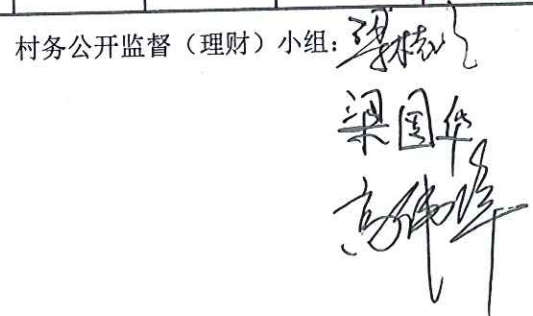 村务公开监督（理财）小组：
梁国华
高伟峰